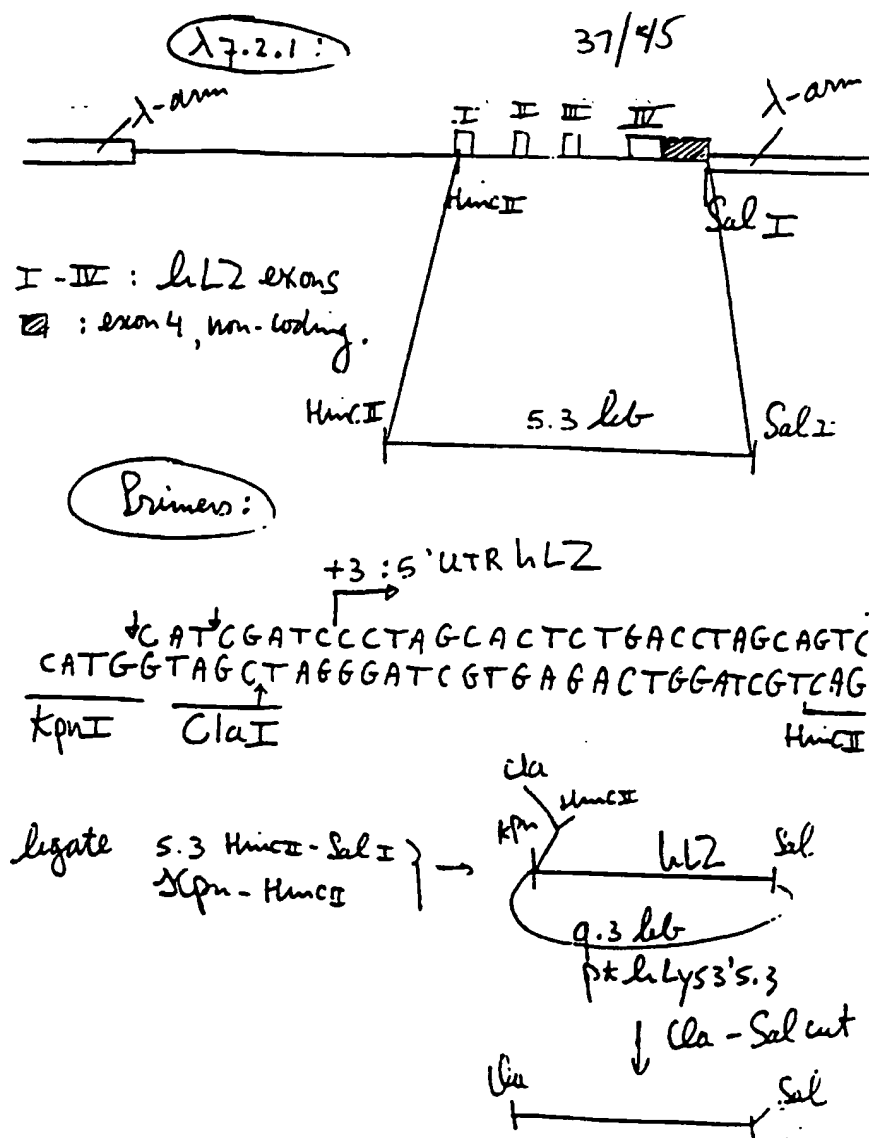 λ7.2.1:
37/45
λ-arm
I II III IV
λ-arm
HincII
Sal I
I - IV : hLZ exons
: exon 4, non-coding.
HincII
5.3 kb
Sal I
Primers:
+3 : 5' UTR hLZ
CATCGATCCCTAGCACTCTGACCTAGCAGTC
CATGGTAGCTAGGGATCGTGAGACTGGATCGTCAG
KpnI
ClaI
HincII
Cla
HincII
Kpn
hLZ
Sal
ligate 5.3 HincII-Sal I
Kpn - HincII
9.3 kb
hLys3'5.3
Cla - Sal cut
Cla
Sal